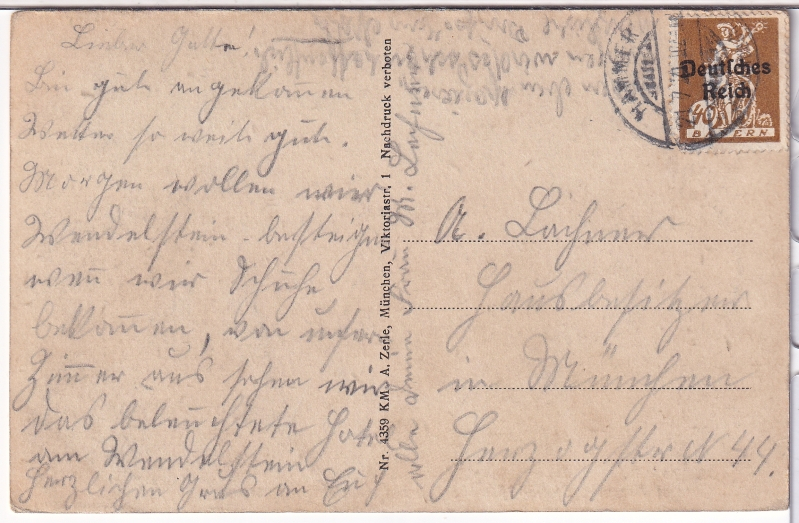 Lieber Gatte!
Bin gut angekommen
Wetter so weit gut.
Morgen wollen wier
Wendelstein besteigen
wenn wir Schuhe
bekommen, von unser
Zimmer aus sehen wir
das beleuchtete Hotel
am Wendelstein
Herzlichen Grus an Euch
alle Deine Frau M. Lachner
Nr. 4359 KM A. Zerle, München, Viktoriastr. 1 Nachdruck verboten
Deutsches
Reich
BAYERN
A. Lachner
Hausbesitzer
in München
Herzogstr N 44.